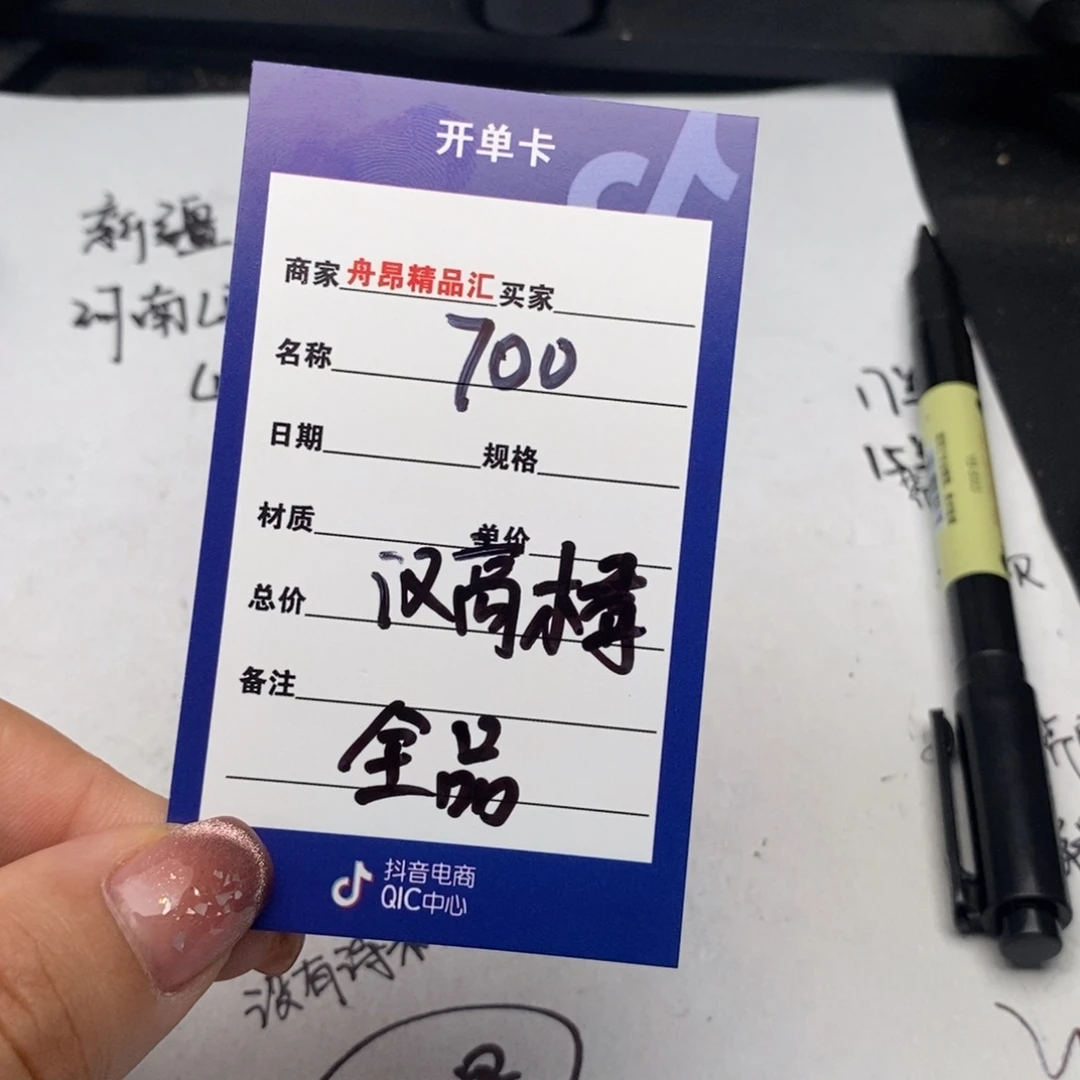 开单卡
商家 舟昂精品汇 买家
名称 700
日期 规格
材质 单价
总价
备注
全品
抖音电商
QIC中心
新疆
河南
没有